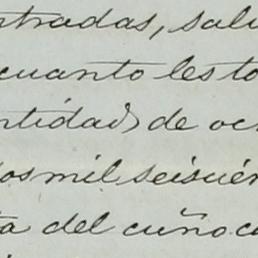 ntradas, salu
cuanto les to
ntidad de oc
os mil seiscien
ta del cuño c